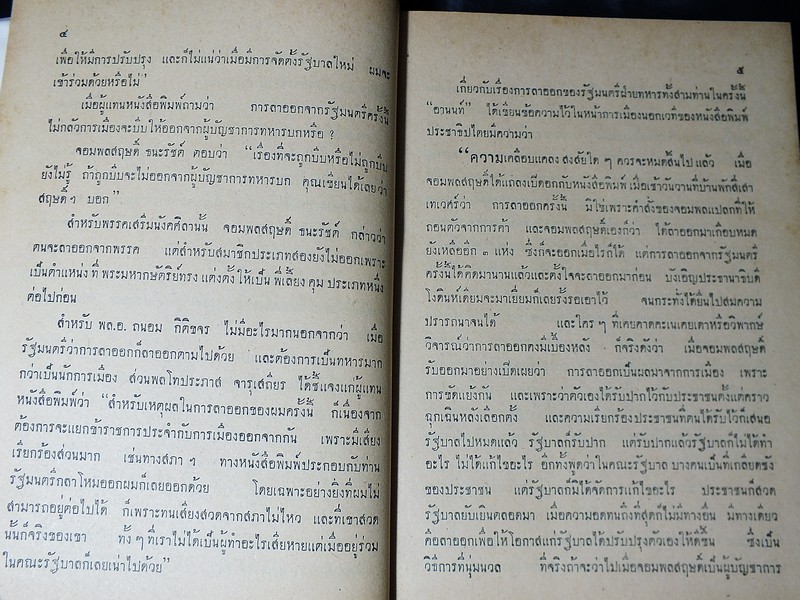 ๔
เพื่อให้มีการปรับปรุง และก็ไม่แน่ว่าเมื่อมีการจัดตั้งรัฐบาลใหม่ ผมจะ
เข้าร่วมด้วยหรือไม่”
เมื่อผู้แทนหนังสือพิมพ์ถามว่า การลาออกจากรัฐมนตรีครั้งนี้
ไม่กลัวการเมืองจะบีบให้ออกจากผู้บัญชาการทหารบกหรือ ?
จอมพลสฤษดิ์ ธนะรัชต์ ตอบว่า “เรื่องที่จะถูกบีบหรือไม่ถูกบีบ
ยังไม่รู้ ถ้าถูกบีบจะไม่ออกจากผู้บัญชาการทหารบก คุณเขียนได้เลยว่า
สฤษดิ์ ๆ บอก”
สำหรับพรรคเสรีมนังคศิลานั้น จอมพลสฤษดิ์ ธนะรัชต์ กล่าวว่า
ตนจะลาออกจากพรรค แต่สำหรับสมาชิกประเภทสองยังไม่ออกเพราะ
เป็นตำแหน่ง ที่ พระมหากษัตริย์ทรง แต่งตั้ง ให้เป็น พี่เลี้ยง คุม ประเภทหนึ่ง
ต่อไปก่อน
สำหรับ พล.อ. ถนอม กิติขจร ไม่มีอะไรมากนอกจากว่า เมื่อ
รัฐมนตรีว่าการลาออกก็ลาออกตามไปด้วย และต้องการเป็นทหารมาก
กว่าเป็นนักการเมือง ส่วนพลโทประภาส จารุเสถียร ได้ชี้แจงแก่ผู้แทน
หนังสือพิมพ์ว่า “สำหรับเหตุผลในการลาออกของผมครั้งนี้ ก็เนื่องจาก
ต้องการจะแยกข้าราชการประจำกับการเมืองออกจากกัน เพราะมีเสียง
เรียกร้องส่วนมาก เช่นทางสภา ฯ ทางหนังสือพิมพ์ประกอบกับท่าน
รัฐมนตรีกลาโหมออกผมก็เลยออกด้วย โดยเฉพาะอย่างยิ่งที่ผมไม่
สามารถอยู่ต่อไปได้ ก็เพราะทนเสียงสวดจากสภาไม่ไหว และที่เขาสวด
นั้นก็จริงของเขา ทั้ง ๆ ที่เราไม่ได้เป็นผู้ทำอะไรเสียหายแต่เมื่ออยู่ร่วม
ในคณะรัฐบาลก็เลยเน่าไปด้วย”
๕
เกี่ยวกับเรื่องการลาออกของรัฐมนตรีฝ่ายทหารทั้งสามท่านในครั้งนี้
“อานนท์” ได้เขียนข้อความไว้ในหน้าการเมืองนอกเวทีของหนังสือพิมพ์
ประชาธิปไตยมีความว่า
“ความเคลือบแคลง สงสัยใด ๆ ควรจะหมดสิ้นไป แล้ว เมื่อ
จอมพลสฤษดิ์ได้แถลงเปิดอกกับหนังสือพิมพ์ เมื่อเช้าวันวานที่บ้านพักสี่เสา
เทเวศร์ว่า การลาออกครั้งนี้ มิใช่เพราะคำสั่งของจอมพลแปลกที่ให้
ถอนตัวจากการค้า และจอมพลสฤษดิ์เองก็ว่า ได้ลาออกมาเกือบหมด
ยังเหลืออีก ๓ แห่ง ซึ่งก็จะออกเมื่อไรก็ได้ แต่การลาออกจากรัฐมนตรี
ครั้งนี้ได้คิดมานานแล้วและตั้งใจจะลาออกมาก่อน บังเอิญประธานาธิบดี
โงดินห์เดียมจะมาเยี่ยมก็เลยรั้งรอเอาไว้ จนกระทั่งได้ยื่นไปสมความ
ปรารถนาจนได้ และใคร ๆ ที่เคยคาดคะเนเดยเดาหรือวิพากษ์
วิจารณ์ว่าการลาออกคงมีเบื้องหลัง ก็จริงดังว่า เมื่อจอมพลสฤษดิ์
รับออกมาอย่างเปิดเผยว่า การลาออกเป็นผลมาจากการเมือง เพราะ
การขัดแย้งกัน และเพราะว่าตัวเองได้รับปากไว้กับประชาชนตั้งแต่คราว
ฉุกเฉินหลังเลือกตั้ง และความเรียกร้องประชาชนที่ตนได้รับไว้ก็เสนอ
รัฐบาลไปหมดแล้ว รัฐบาลก็รับปาก แต่รับปากแล้วรัฐบาลก็ไม่ได้ทำ
อะไร ไม่ได้แก้ไขอะไร อีกทั้งพูดว่าในคณะรัฐบาล บางคนเป็นที่เกลียดชัง
ของประชาชน แต่รัฐบาลก็มิได้จัดการแก้ไขอะไร ประชาชนก็สวด
รัฐบาลยับเยินตลอดมา เมื่อความอดทนถึงที่สุดก็ไม่มีทางอื่น มีทางเดียว
คือลาออกเพื่อให้โอกาสแก่รัฐบาลได้ปรับปรุงตัวเองให้ดีขึ้น ซึ่งเป็น
วิธีการที่นุ่มนวล ที่จริงถ้าจะว่าไปเมื่อจอมพลสฤษดิ์เป็นผู้บัญชาการ